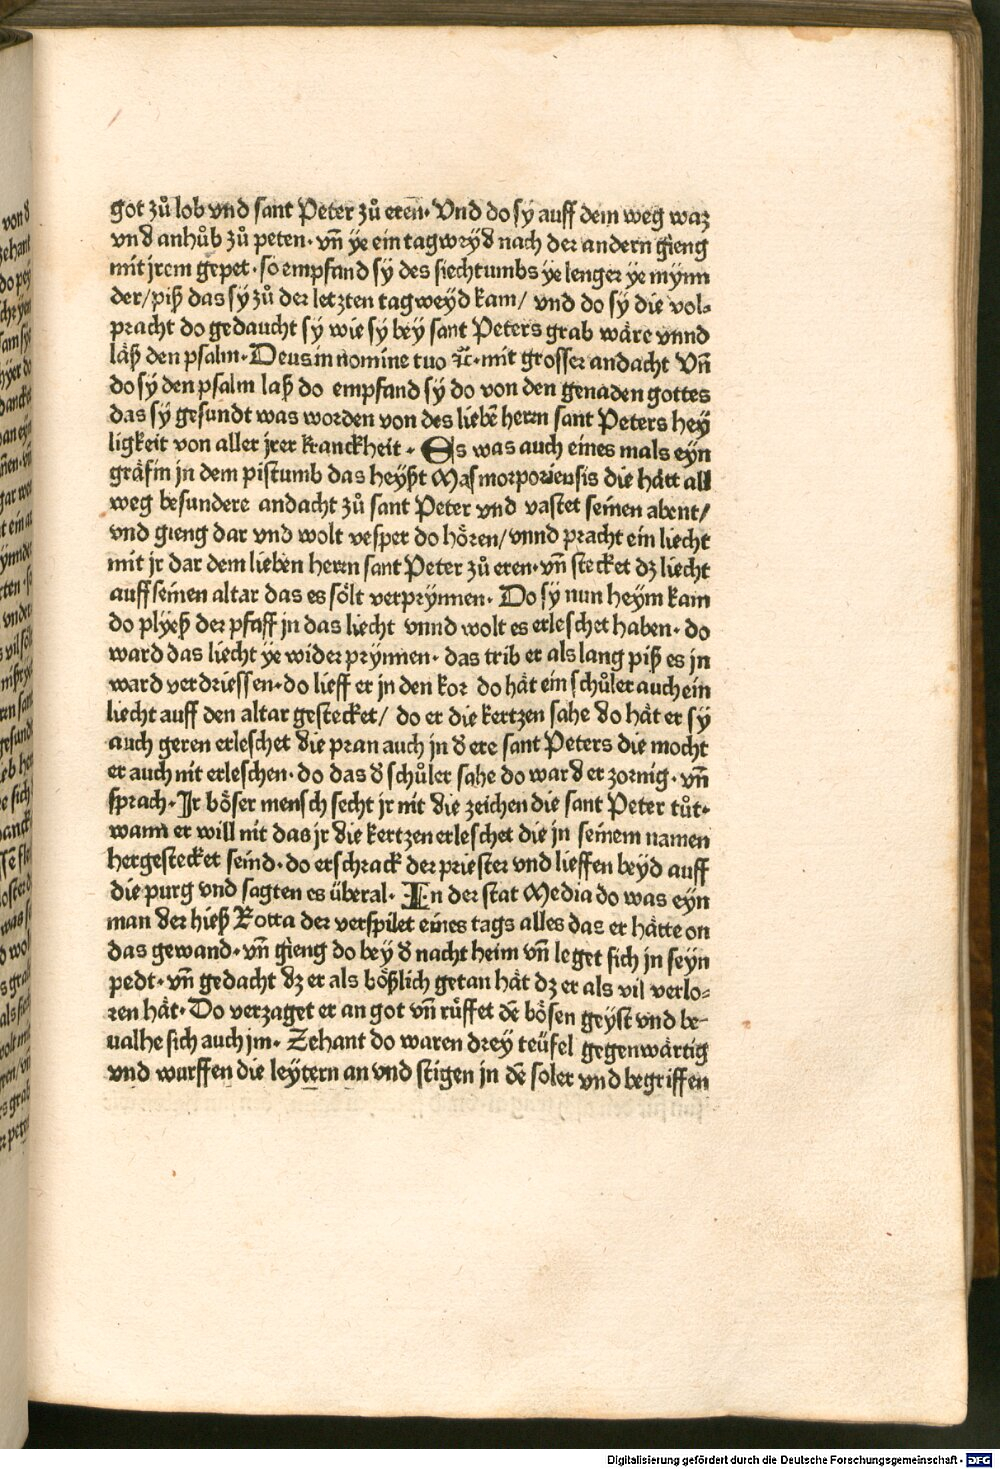 got zuͦ lob vnd sant Peter zuͦ eren· Vnd do sy auff dem weg waz
vnd anhuͦb zuͦ peten· vn̄ ye ein tagweyd nach der andern gieng
mit jrem gepet· so empfand sy des siechtumbs ye lenger ye mynn
der/ piß das sy zuͦ der letzten tagweyd kam/ vnd do sy die vol⸗
pracht do gedaucht sy wie sy bey sant Peters grab waͤre vnnd
laͤß den psalm· Deus in nomine tuo ꝛc̄· mit grosser andacht Vn̄
do sy den psalm laß do empfand sy do von den genaden gottes
das sy gesundt was worden von des liebē herrn sant Peters hey
ligkeit von aller jrer kranckheit · Es was auch eines mals eyn
graͤfin jn dem pistumb das heyßt Masmorporiensis die haͤtt all
weg besundere andacht zuͦ sant Peter vnd vastet seinen abent/
vnd gieng dar vnd wolt vesper do hoͤren/ vnnd pracht ein liecht
mit jr dar dem lieben herrn sant Peter zuͦ eren· vn̄ stecket dz liecht
auff seinen altar das es soͤlt verprynnen· Do sy nun heym kam
do plyeß der pfaff jn das liecht vnnd wolt es erleschet haben· do
ward das liecht ye wider prynnen· das trib er als lang piß es jn
ward verdriessen· do lieff er jn den kor do haͤt ein schuͦler auch ein
liecht auff den altar gestecket/ do er die kertzen sahe do haͤt er sy
auch geren erleschet die pran auch jn d̓ ere sant Peters die mocht
er auch nit erleschen· do das d̓ schuͦler sahe do ward er zornig· vn̄
sprach· Ir boͤser mensch secht jr nit die zeichen die sant Peter tuͦt·
wann er will nit das jr die kertzen erleschet die jn seinem namen
hergestecket seind· do erschrack der priester vnd lieffen beyd auff
die purg vnd sagten es uͤberal· In der stat Media do was eyn
man der hieß Rotta der verspilet eines tags alles das er haͤtte on
das gewand· vn̄ gieng do bey d̓ nacht heim vn̄ leget sich jn seyn
pedt· vn̄ gedacht dz er als boͤßlich getan haͤt dz er als vil verlo⸗
ren haͤt· Do verzaget er an got vn̄ ruͤffet dē boͤsen geyst vnd be⸗
ualhe sich auch jm· Zehant do waren drey teuͤfel gegenwaͤrtig
vnd wurffen die leytern an vnd stigen jn dē soler vnd begriffen
Digitalisierung gefördert durch die Deutsche Forschungsgemeinschaft - DFG